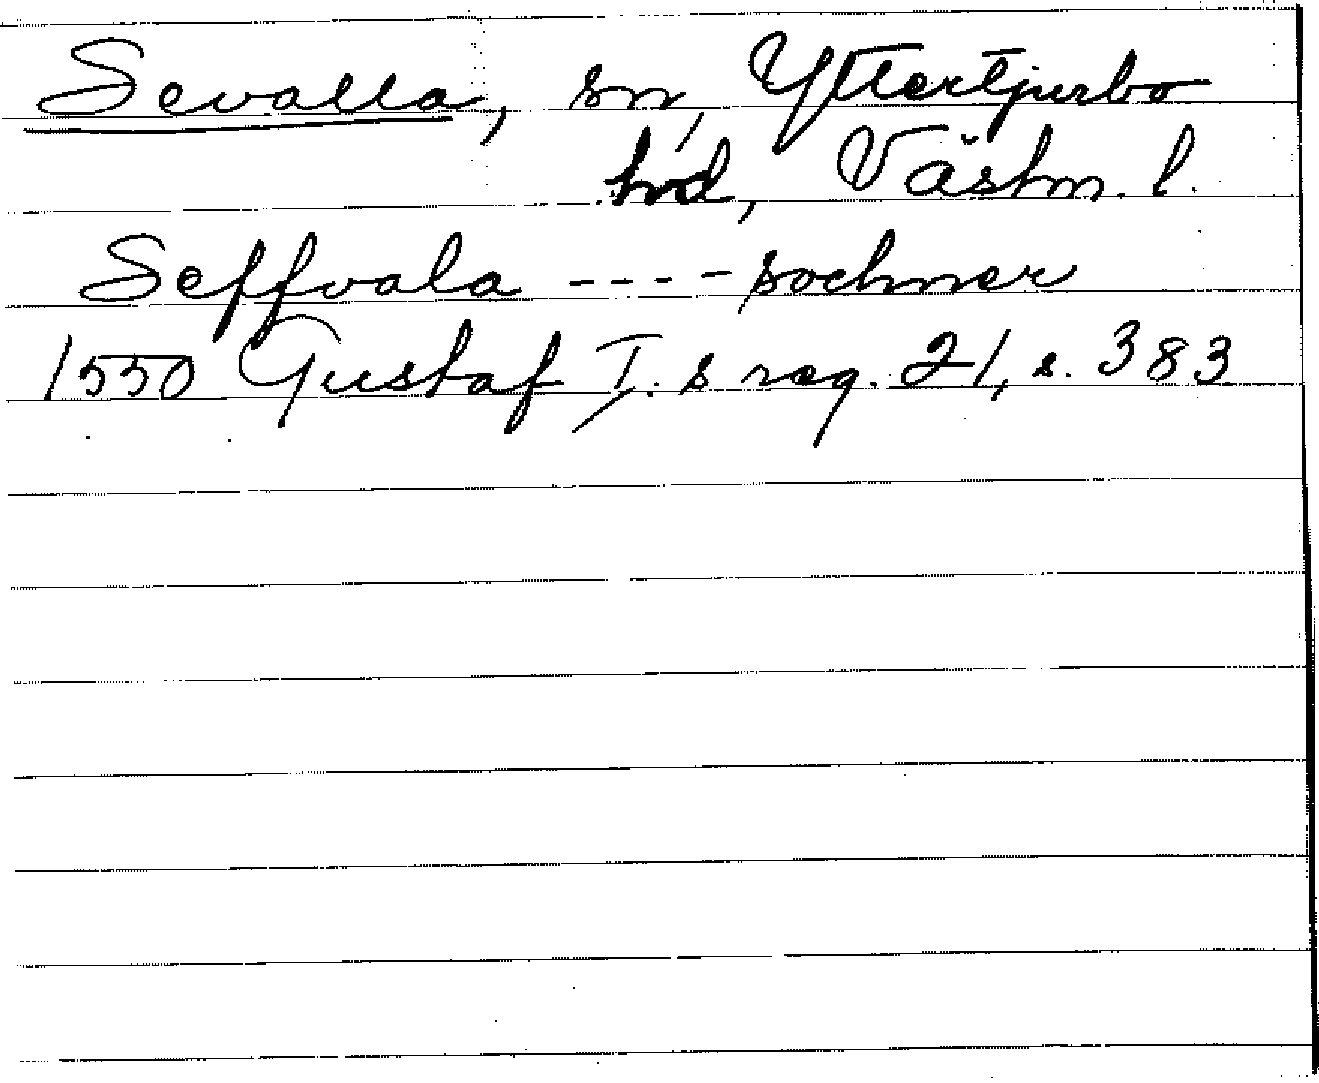 Sevalla, sn, Yttertjurbo
hd, Västm. l.
Seffvala ---- sochner
1550 Gustaf I. s reg. 21, s. 383